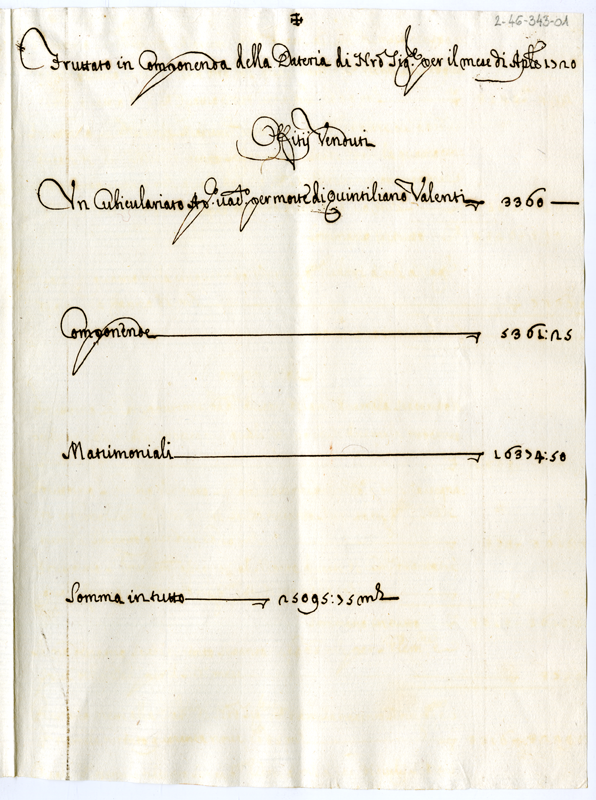 2-46-343-01
✠
Fruttato in Componenda della Dateria di Nro Sigre per il mese di Aple 1720
Offitij Venduti
Un Cubiculariato Ap. vac. per morte di Quintiliano Valenti 3360
Componende 5361:25
Matrimoniali 16374:50
Somma in tutto 25095:75 mta